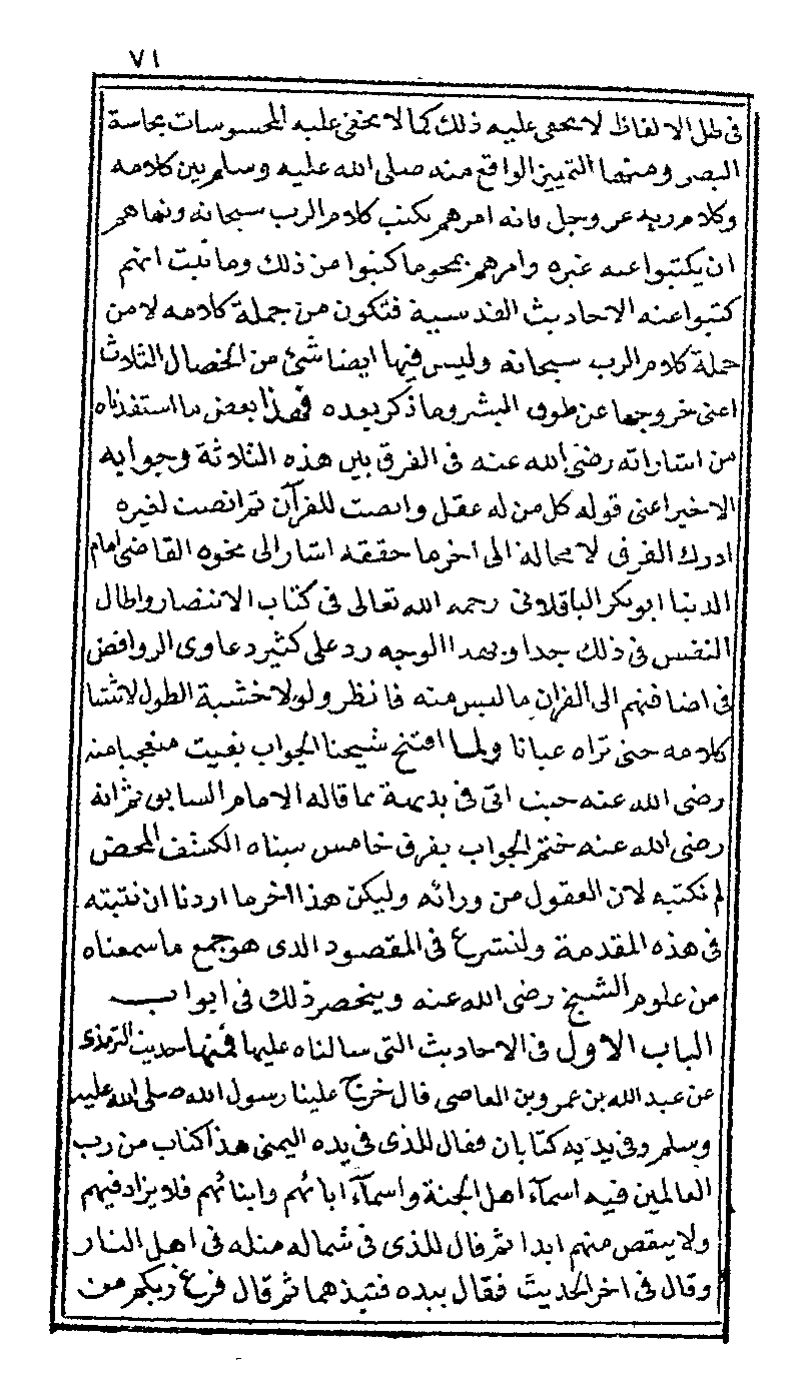 ٧١
فى ظل الالفاظ لا يخفى عليه ذلك كما لا يخفى عليه المحسوسات بحاسة
البصر ومنها التمييز الواقع منه صلى الله عليه وسلم بين كلامه
وكلام ربه عز وجل فانه امرهم بكتب كلام الرب سبحانه ونهاهم
ان يكتبوا عنه غيره وامرهم بمحو ما كتبوا من ذلك وما ثبت انهم
كتبوا عنه الاحاديث القدسية فتكون من جملة كلامه لا من
جملة كلام الرب سبحانه وليس فيها ايضا شئ من الخصال الثلاث
اعنى خروجها عن طوق البشر وما ذكر بعده فهذا بعض ما استفدناه
من اشاراته رضى الله عنه فى الفرق بين هذه الثلاثة وجوابه
الاخير اعنى قوله كل من له عقل وانصت للقرآن ثم انصت لغيره
ادرك الفرق لا محالة الى اخر ما حققه اشار الى نحوه القاضى امام
الدنيا ابو بكر الباقلانى رحمه الله تعالى فى كتاب الانتصار واطال
النفس فى ذلك جدا وبهذا الوجه رد على كثير دعاوى الروافض
فى اضافتهم الى القران ما ليس منه فانظر ولولا خشية الطول لاثبتنا
كلامه حتى تراه عيانا ولما افتتح شيخنا الجواب بقيت متعجبا منه
رضى الله عنه حيث اتى فى بديهة بما قاله الامام السابق ثم انه
رضى الله عنه ختم الجواب بفرق خامس سبناه الكشف المحض
لم نكتبه لان العقول من ورائه وليكن هذا اخر ما اردنا ان نثبته
فى هذه المقدمة ولنشرع فى المقصود الذى هو جمع ما سمعناه
من علوم الشيخ رضى الله عنه وينحصر ذلك فى ابواب
الباب الاول فى الاحاديث التى سالناه عليها فمنها حديث الترمذى
عن عبد الله بن عمرو بن العاصى قال خرج علينا رسول الله صلى الله عليه
وسلم وفى يديه كتابان فقال للذى فى يده اليمنى هذا كتاب من رب
العالمين فيه اسمآء اهل الجنة واسمآء ابائهم وابنائهم فلا يزاد فيهم
ولا ينقص منهم ابدا ثم قال للذى فى شماله مثله فى اهل النار
وقال فى اخر الحديث فقال بيده فنبذهما ثم قال فرغ ربكم من